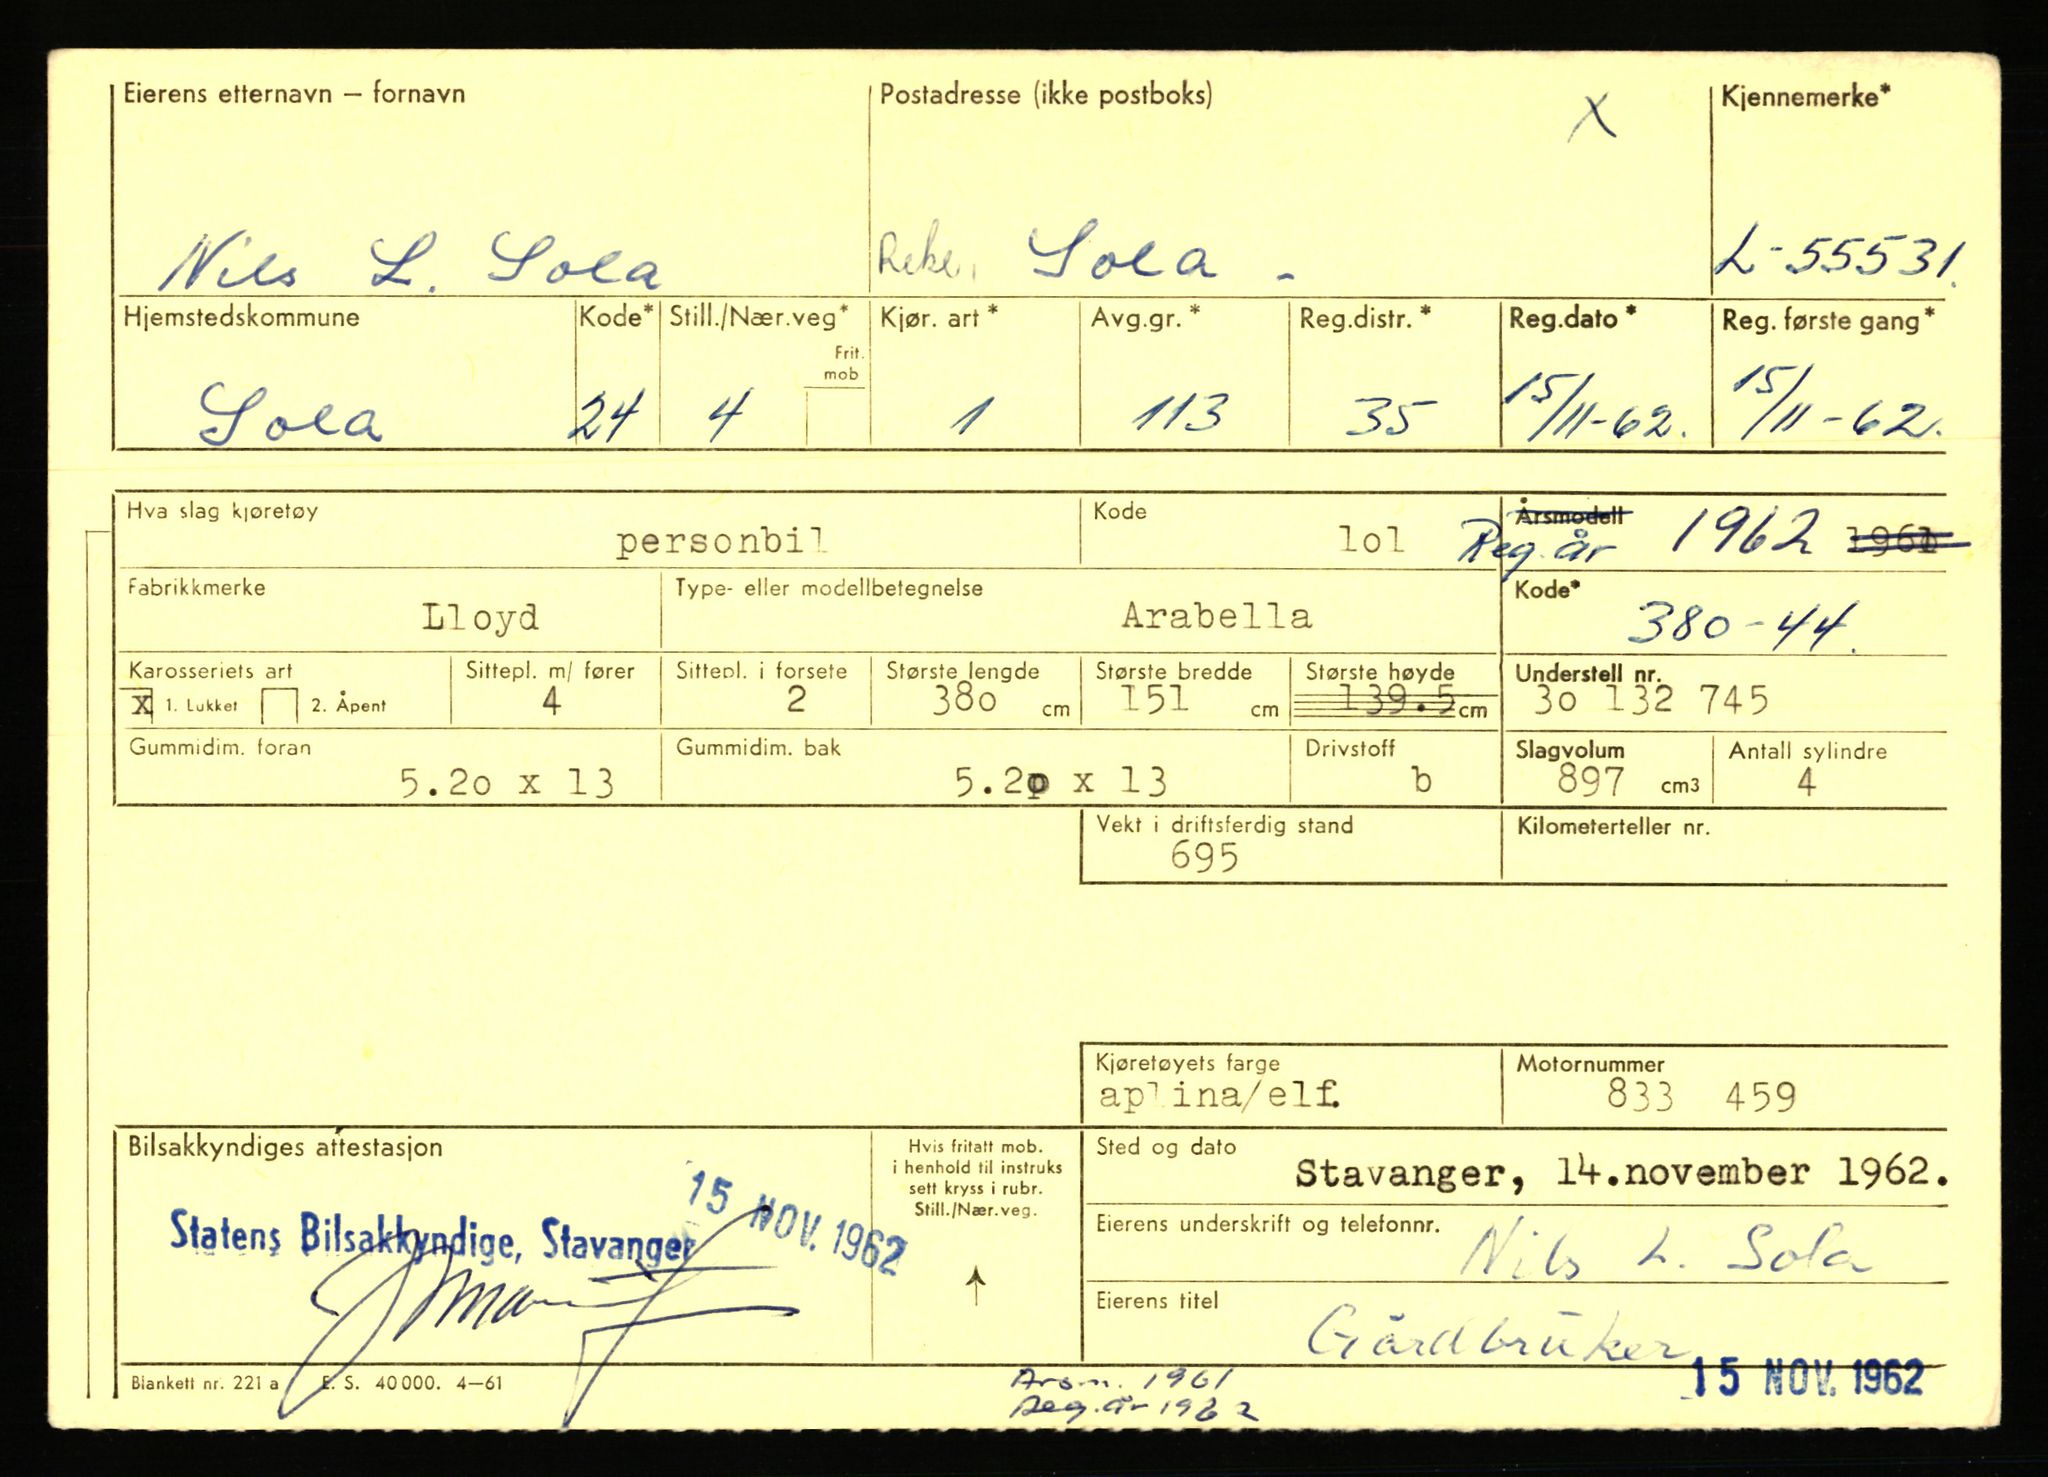 Eierens etternavn – fornavn   Postadresse (ikke postboks)   X   Kjennemerke*
Nils L. Sola   Sola -   L-55531.
Hjemstedskommune   Kode*   Still./Nær.veg*   Kjør. art*   Avg.gr.*   Reg.distr.*   Reg.dato*   Reg. første gang*
Frit.
mob
Sola   24   4   1   113   35   15/11-62.   15/11-62.
Hva slag kjøretøy   Kode   Årsmodell
personbil   lol   Reg.år   1962
Fabrikkmerke   Type- eller modellbetegnelse   Kode*
Lloyd   Arabella   380-44.
Karosseriets art   Sittepl. m/ fører   Sittepl. i forsete   Største lengde   Største bredde   Største høyde   Understell nr.
X 1. Lukket   2. Åpent   4   2   380 cm   151 cm   139.5 cm   3o 132 745
Gummidim. foran   Gummidim. bak   Drivstoff   Slagvolum   Antall sylindre
5.2o x 13   5.2o x 13   b   897 cm3   4
Vekt i driftsferdig stand   Kilometerteller nr.
695
Kjøretøyets farge   Motornummer
aplina/elf.   833 459
Bilsakkyndiges attestasjon   Hvis fritatt mob.
i henhold til instruks
sett kryss i rubr.
Still./Nær.veg.
Sted og dato
Stavanger, 14.november 1962.
15 NOV. 1962
Statens Bilsakkyndige, Stavanger
Eierens underskrift og telefonnr.
Nils L. Sola
Eierens titel
Gårdbruker
15 NOV. 1962
Blankett nr. 221 a   E. S. 40 000. 4–61
Arsm. 1961
Reg.år 1962